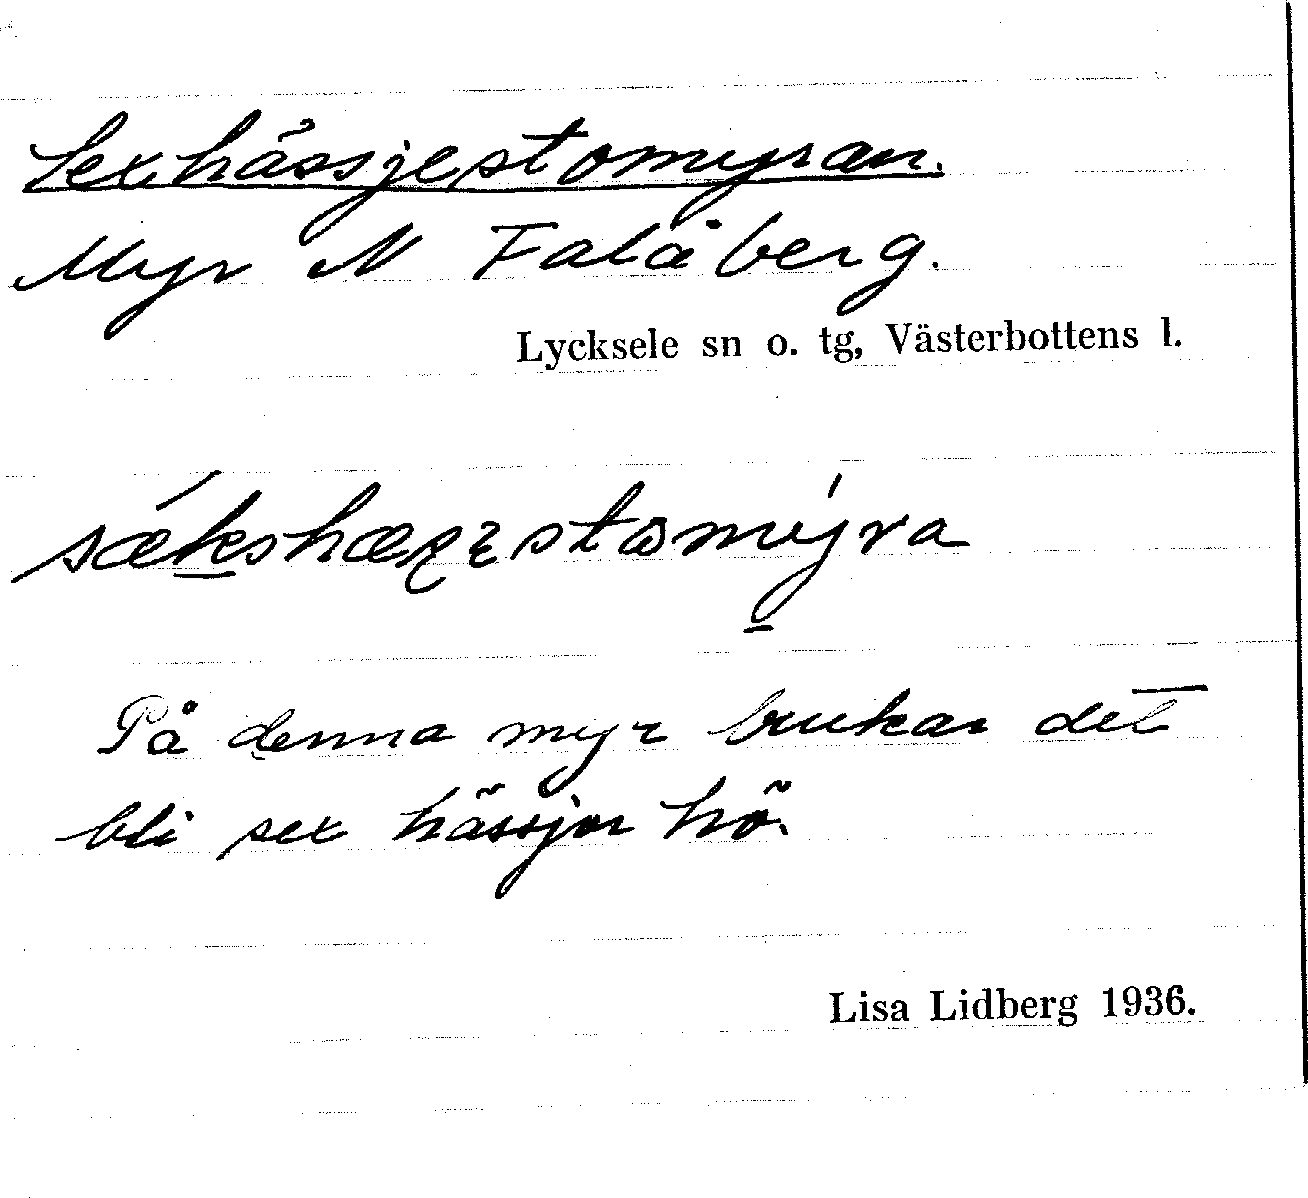 Sexhässjestomyran.
Myr N Falåberg.
Lycksele sn o. tg, Västerbottens l.
På denna myr brukar det
bli sex hässjor hö.
Lisa Lidberg 1936.